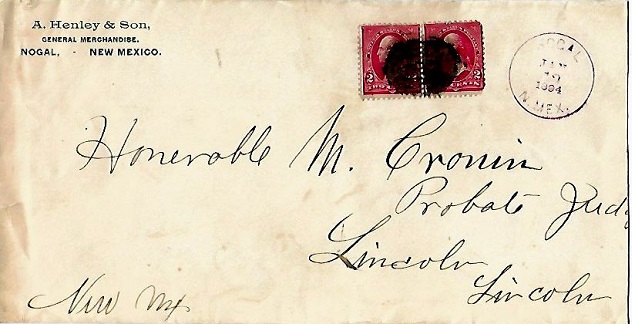 A. Henley & Son,
GENERAL MERCHANDISE.
NOGAL, - NEW MEXICO.
2 2
NOGAL
JAN
1894
N. MEX.
Honerable M. Cronin
Probate Judg
Lincoln
Lincoln
New Mx